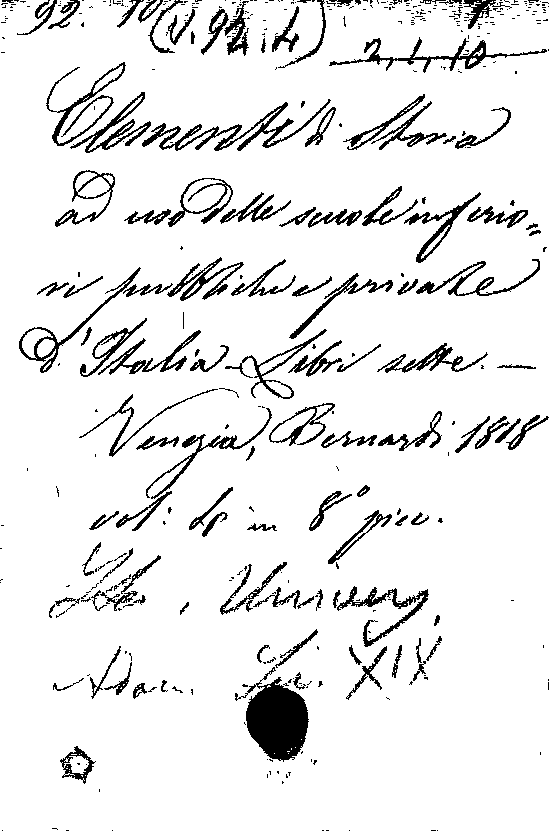 92. 10
(V. 92. 4)
2. 1. 10
Elementi di Storia
ad uso delle scuole inferio=
ri pubbliche e private
d'Italia - Libri sette. —
Venezia, Bernardi 1818
vol: 4 in 8° picc.
Univers.
XIX